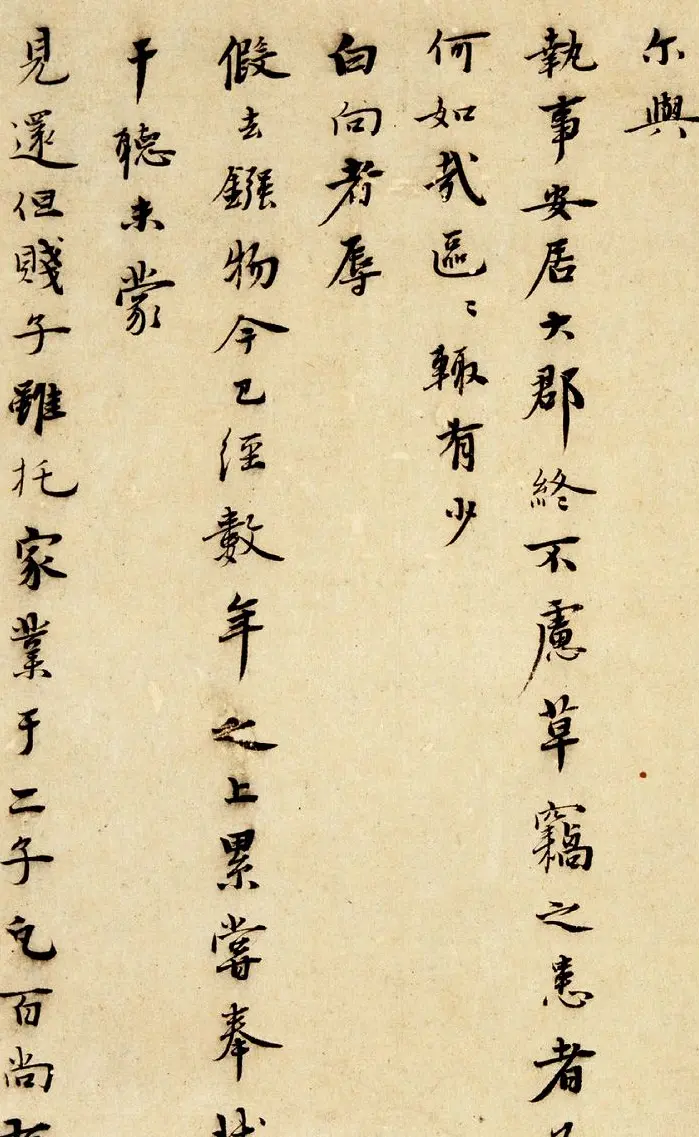 尔與
執事安居大郡終不慮草竊之患者
何如哉區〻輙有少
白向者辱
假去鏹物今已經數年之上累嘗奉
干聽未蒙
見還但賤子雖托家業于二子凢百尚